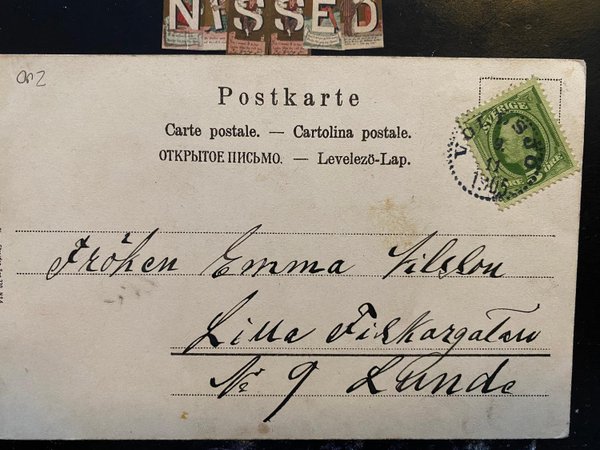 NISSED
Postkarte
Carte postale. — Cartolina postale.
ОТКРЫТОЕ ПИСЬМО. — Levelező-Lap.
SVERIGE
VOLLSJÖ
11
1905
Fröken Emma Nilsson
Lilla Fiskargatan
No 9 Lund